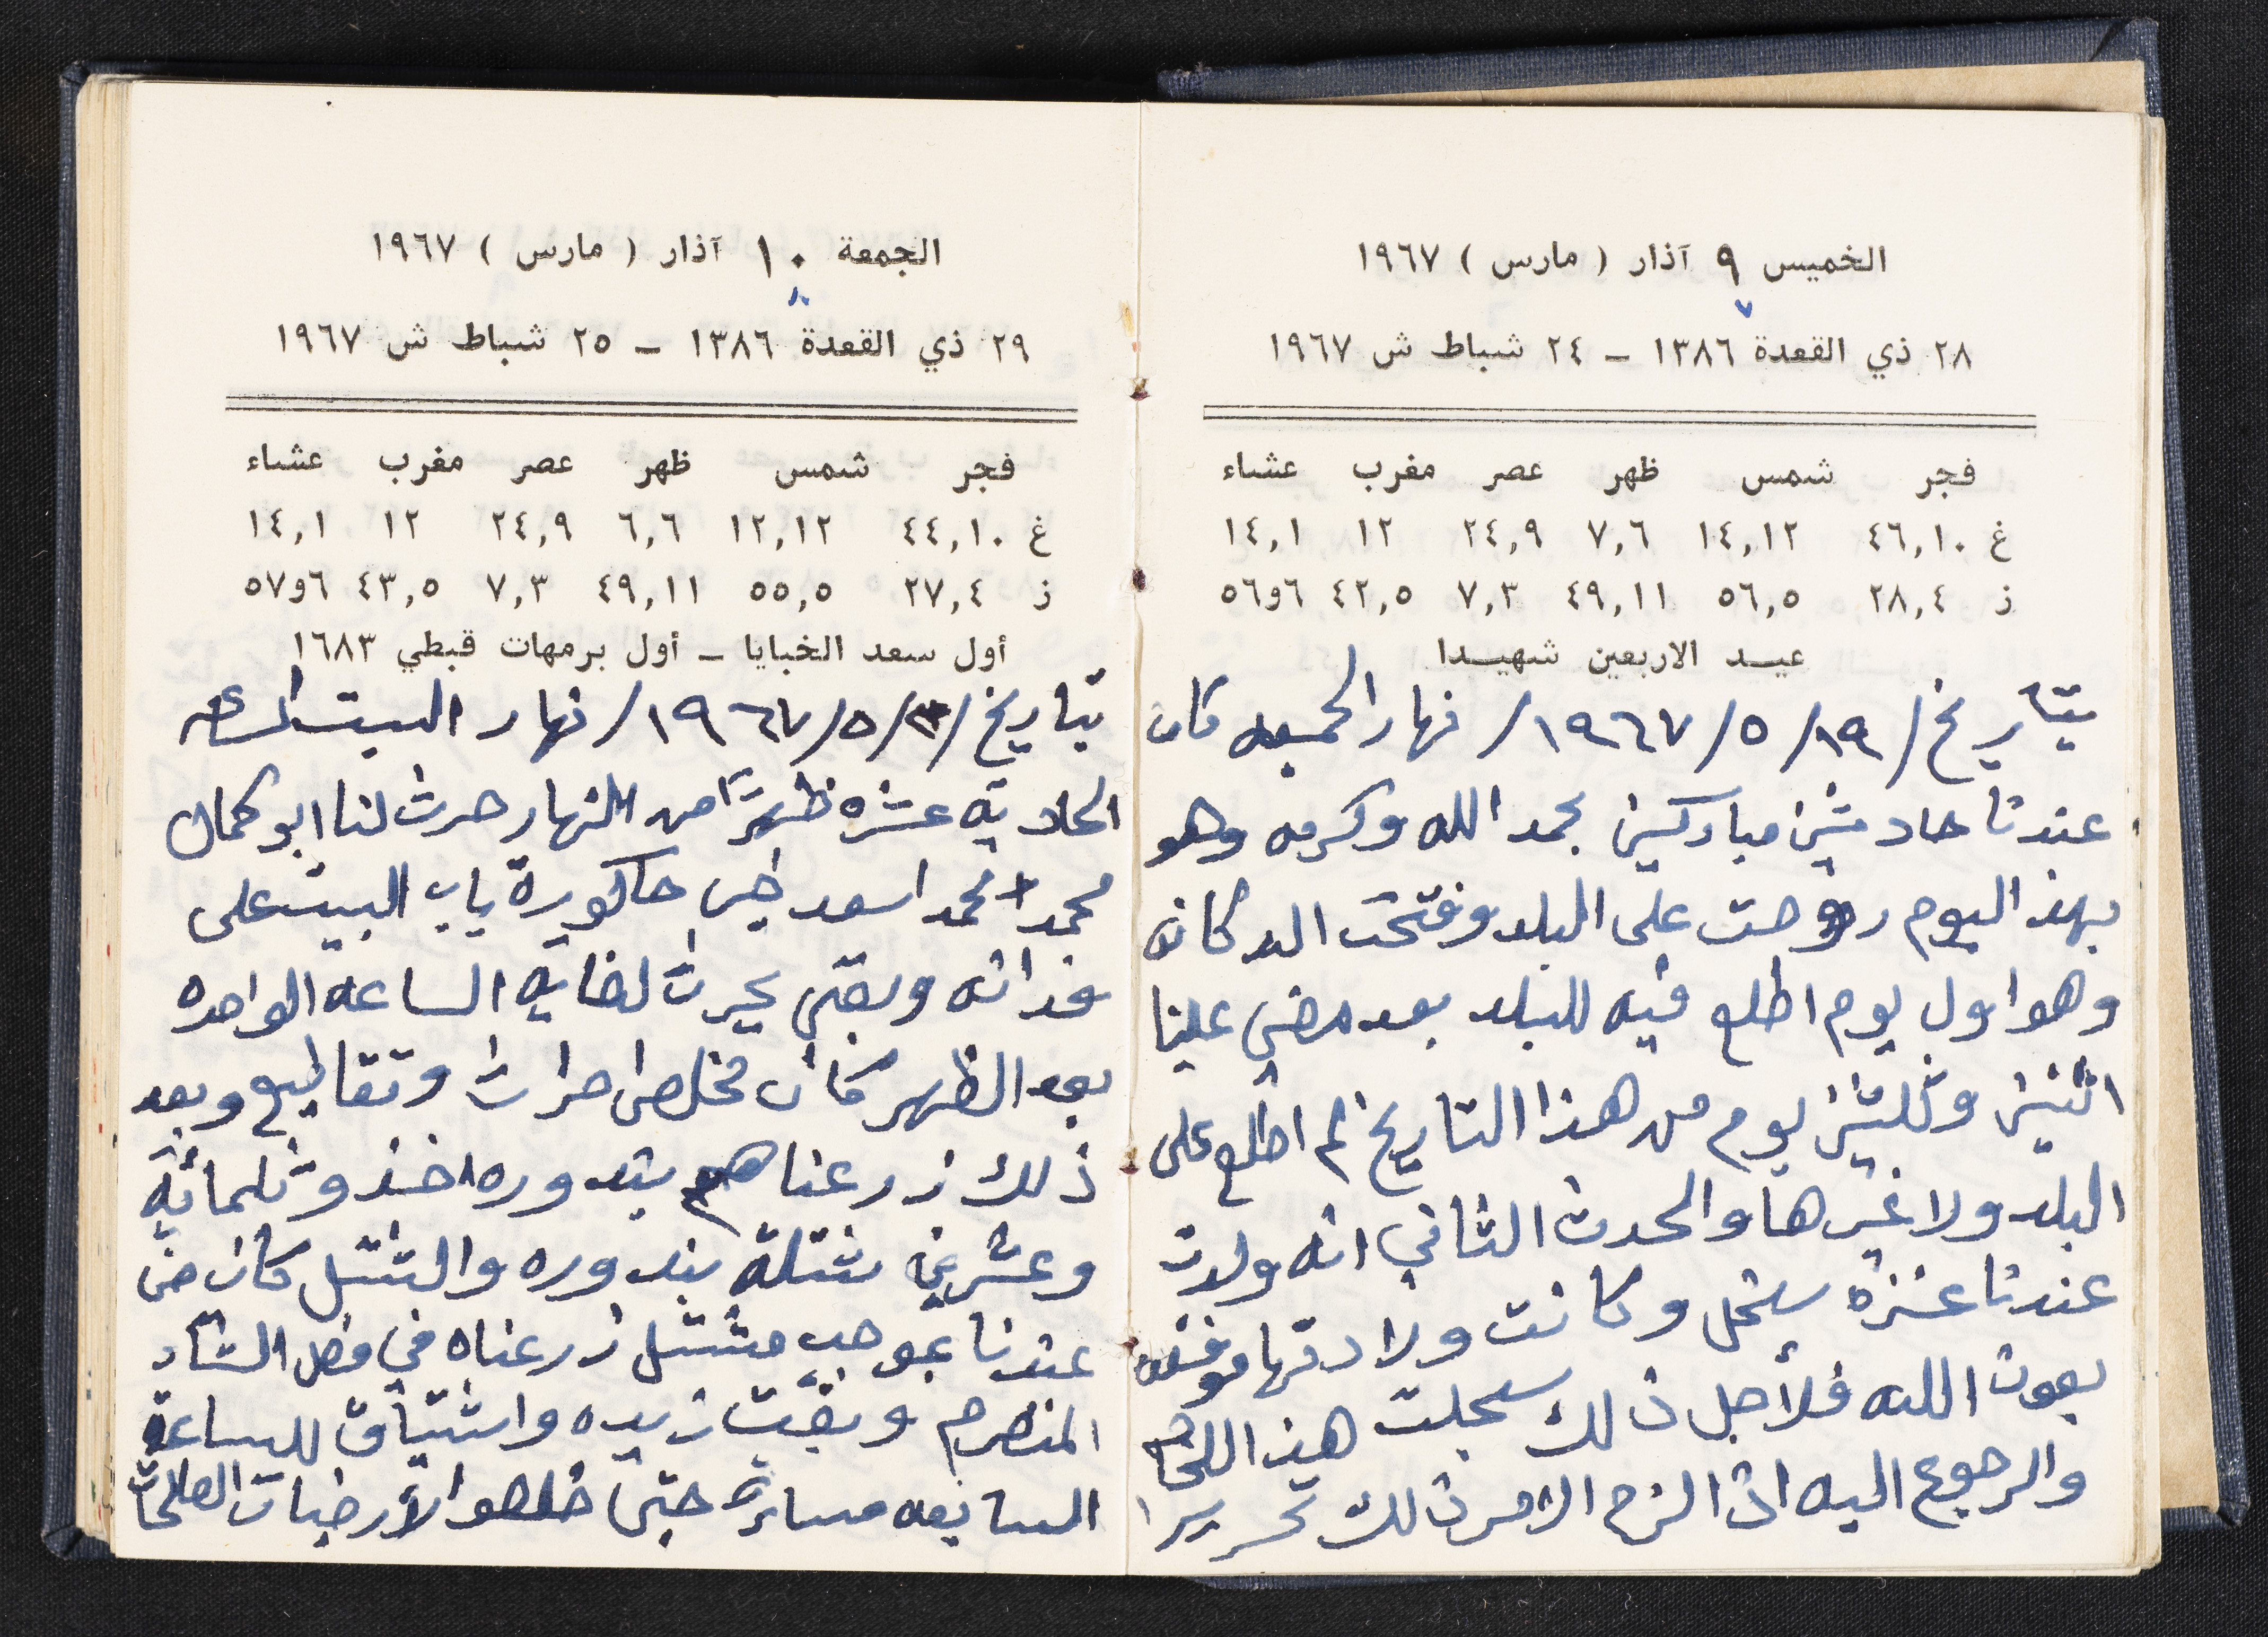 الخميس ٩ آذار ( مارس ) ١٩٦٧
٧
٢٨ ذي القعدة ١٣٨٦ – ٢٤ شباط ش ١٩٦٧
فجر شمس ظهر عصر مغرب عشاء
غ ٤٦,١٠ ١٤,١٢ ٧,٦ ٢٤,٩ ١٢ ١٤,١
ز ٢٨,٤ ٥٦,٥ ٤٩,١١ ٧,٣ ٤٢,٥ ٦و٥٦
عيد الاربعين شهيدا
بتاريخ /١٩/٥/١٩٦٧/ نهار الجمعه كان
عندنا حادثين مباركين بحمد الله وكرمه وهو
بهذ اليوم روحت على البلد وفتحت الدكانه
وهو اول يوم اطلع فيه للبلد بعد مضي علينا
اثنين وثلثين يوم من هذا التاريخ لم اطلع على
البلد ولا غيرها والحدث الثاني انه ولدت
عندنا عنزه سخل وكانت ولادتها موفقه
بعون الله فلأجل ذلك سجلت هذ
والرجوع اليه اذا لزم الامر ذلك تحريرا
الجمعة ١٠ آذار ( مارس ) ١٩٦٧
٨
٢٩ ذي القعدة ١٣٨٦ – ٢٥ شباط ش ١٩٦٧
فجر شمس ظهر عصر مغرب عشاء
غ ٤٤,١٠ ١٢,١٢ ٦,٦ ٢٤,٩ ١٢ ١٤,١
ز ٢٧,٤ ٥٥,٥ ٤٩,١١ ٧,٣ ٤٣,٥ ٦و٥٧
أول سعد الخبايا – أول برمهات قبطي ١٦٨٣
بتاريخ /٥/١٩٦٧/ نهار السبت الساعه
الحاديه عشره ظهرًا من النهار حرث لنا ابو كمال
محمد محمد اسعد حاكورة باب البيت على
فدانه وبقى يحرث لغاية الساعه الواحده
بعد الظهر كان مخلص احراث وتقاطيع وبعد
ذلك زرعناهم بندوره اخذو ثلمائة
وعشرين شتلة بندوره والشتل كان من
عندنا بموجب مشتل زرعناه في فصل الشتاء
المنصرم وبقت زيده واشتياق للساعة
السابعه مساءً حتى خلصو الأرضيات